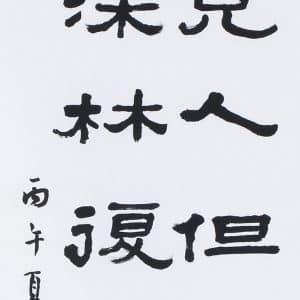 見人但
深林復
丙午夏